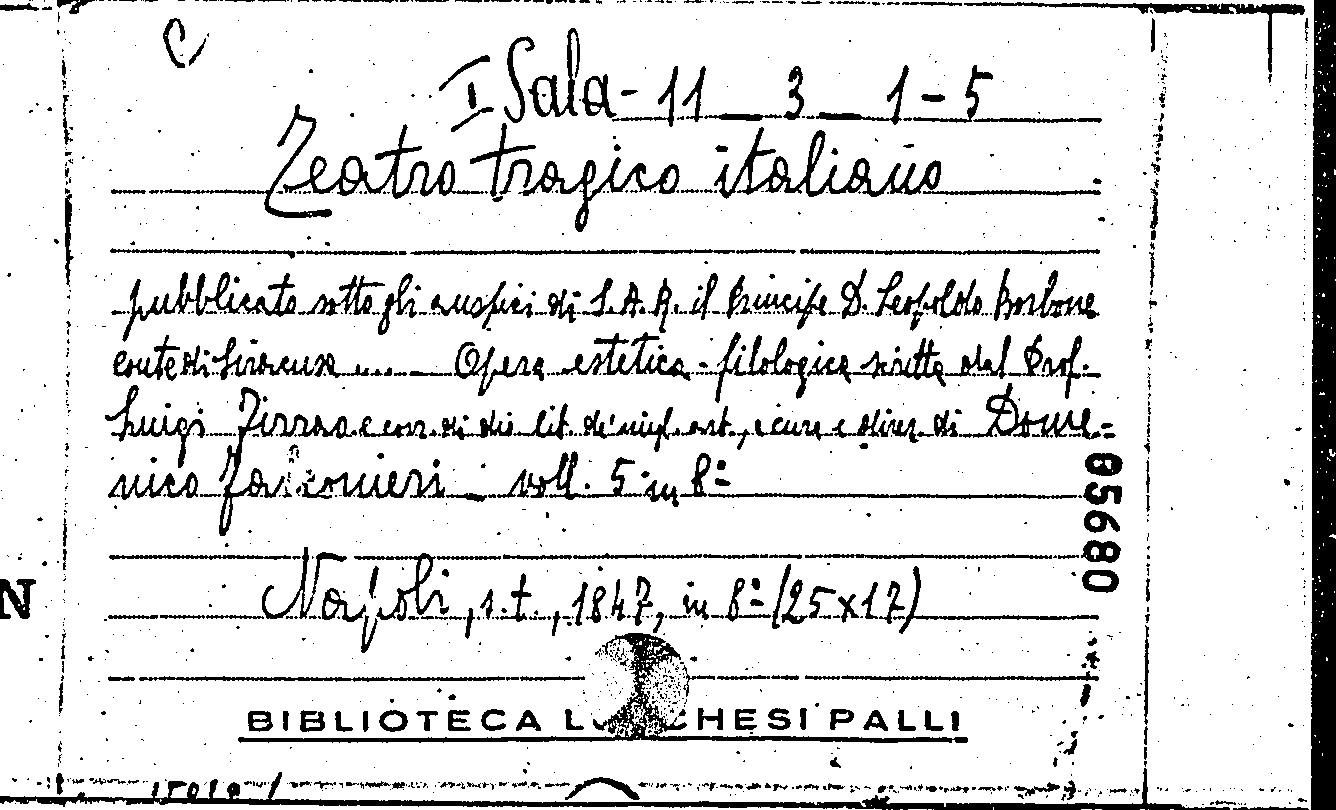 C
I Sala - 11 _ 3 _ 1 - 5
Teatro tragico italiano
pubblicato sotto gli auspici di S.A.R. il Principe D. Leopoldo Borbone
conte di Siracusa .... _ Opera estetica - filologica scritta dal Prof.
Luigi Zirrao e corr. di die lit. de' migl. art., a cura e direz. di Dome=
nico Falconieri _ voll. 5 in 8º
05680
Napoli, s.t., 1847, in 8º (25x17)
N
BIBLIOTECA L CHESI PALLI